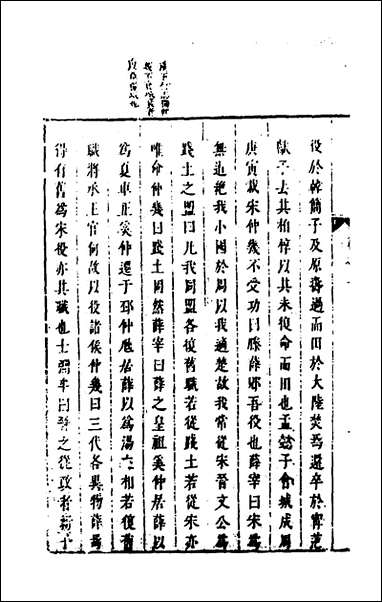 役於韓簡子及原壽過而田於大陸焚焉還卒於甯范
獻子去其柏椁以其未復命而田也孟懿子會城成周
庚寅栽宋仲幾不受功曰滕薛郳吾役也薛宰曰宋爲
無道絕我小國於周以我適楚故我常從宋晉文公爲
踐土之盟曰凡我同盟各復舊職若從踐土若從宋亦
唯命仲幾曰踐土固然薛宰曰薛之皇祖奚仲居薛以
爲夏車正奚仲遷于邳仲虺居薛以爲湯左相若復舊
職將承王官何故以役諸侯仲幾曰三代各異物薛焉
得有舊爲宋役亦其職也士彌牟曰晉之從政者新子